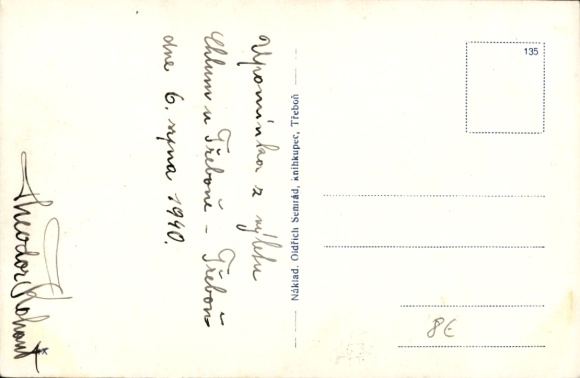 Upomínka z výletu
Chlum u Třeboně - Třeboň
dne 6. srpna 1940.
Theodor Kohout
Náklad. Oldřich Semrád, knihkupec, Třeboň
135
8€